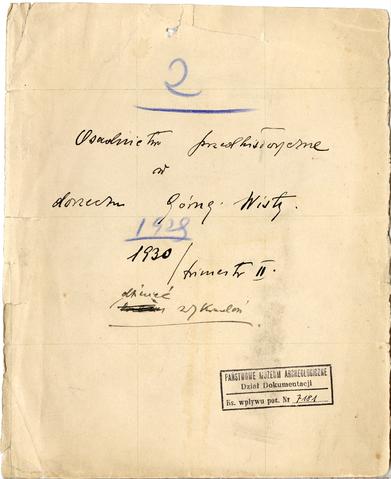 2
Osadnictwo przedhistoryczne
w
dorzeczu Górnej Wisły.
1928
1930/trimestr II.
dziesięć
wykładów
PAŃSTWOWE MUZEUM ARCHEOLOGICZNE
Dział Dokumentacji
Ks. wpływu pot. Nr 7181